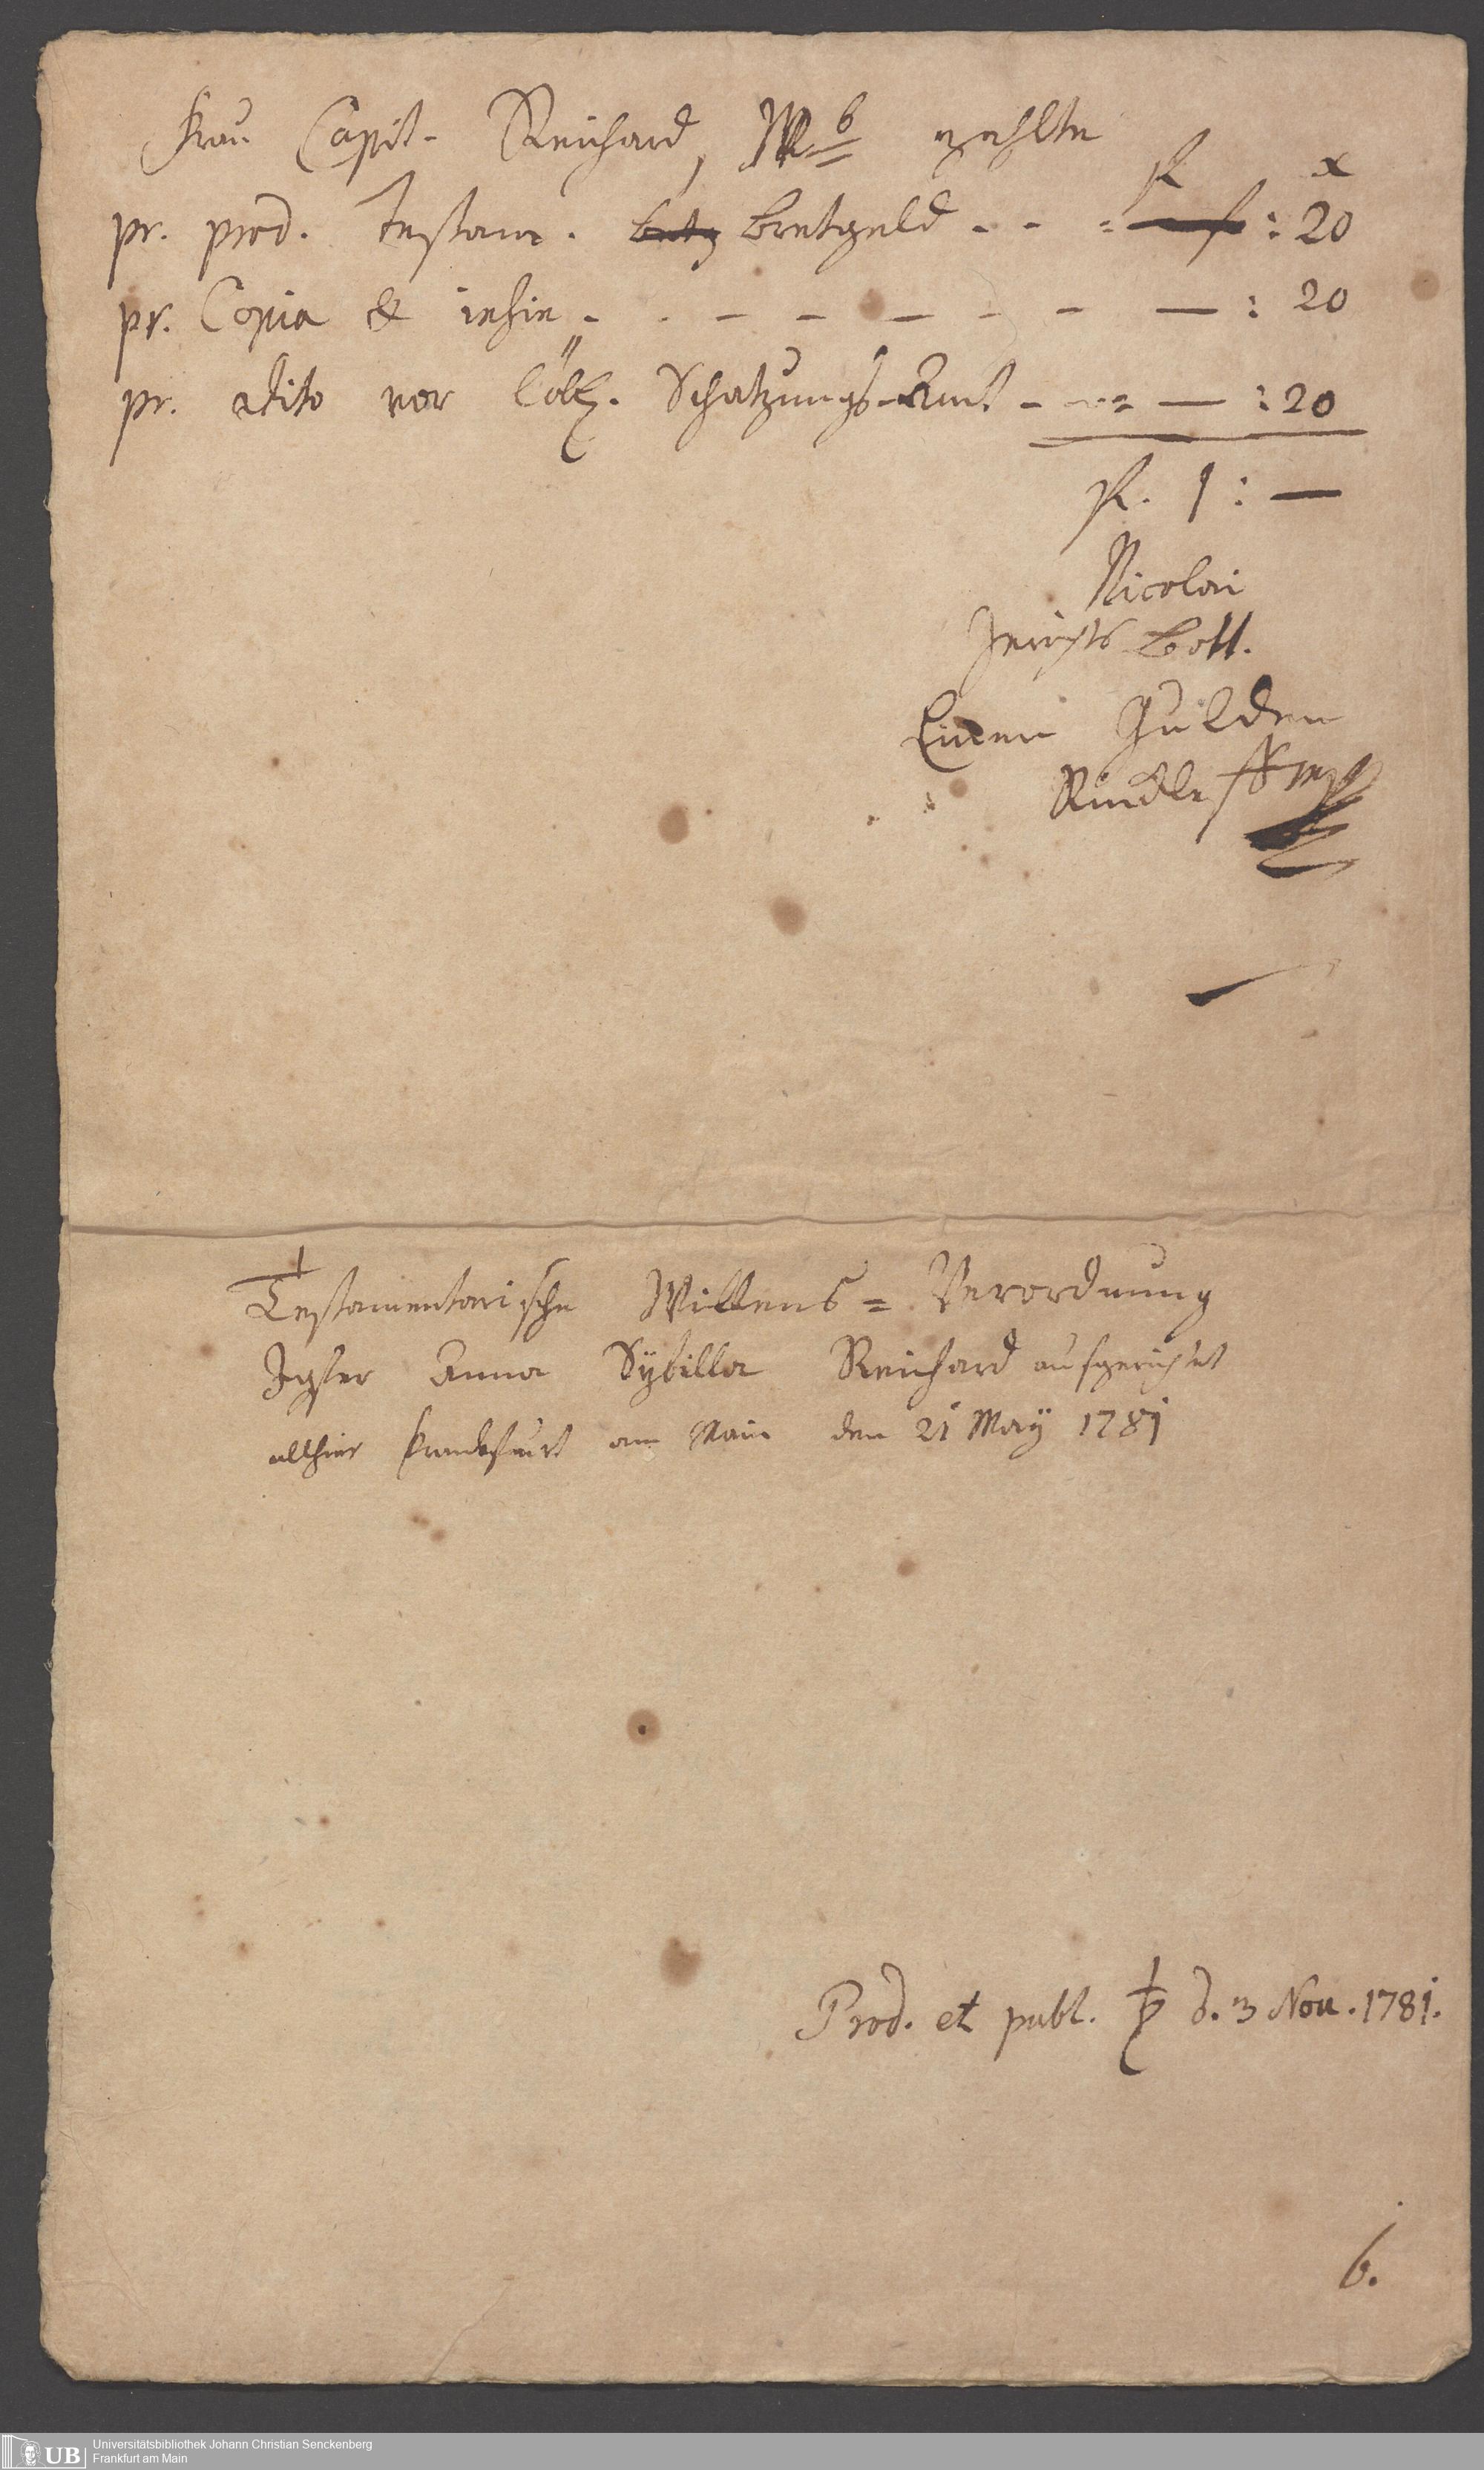 Frau Capit. Reichard, Wb zahlte
fl x
pr. prod. Testam. Bretgeld - - = — : 20
pr. Copia & - . - - - - - — : 20
pr. dito vor Löbl. Schatzungs-Amt - - = — : 20
fl. 1 : —
Nicolai
Gerichts Bott.
Einen Gulden
Testamentarische Willens = Verordnung
Jgfer Anna Sÿbilla Reichard aufgericht
allhier Franckfurt am Main den 21 Maÿ 1781
Prod. et publ. d. 3 Nov. 1781.
6.
UB
Universitätsbibliothek Johann Christian Senckenberg
Frankfurt am Main